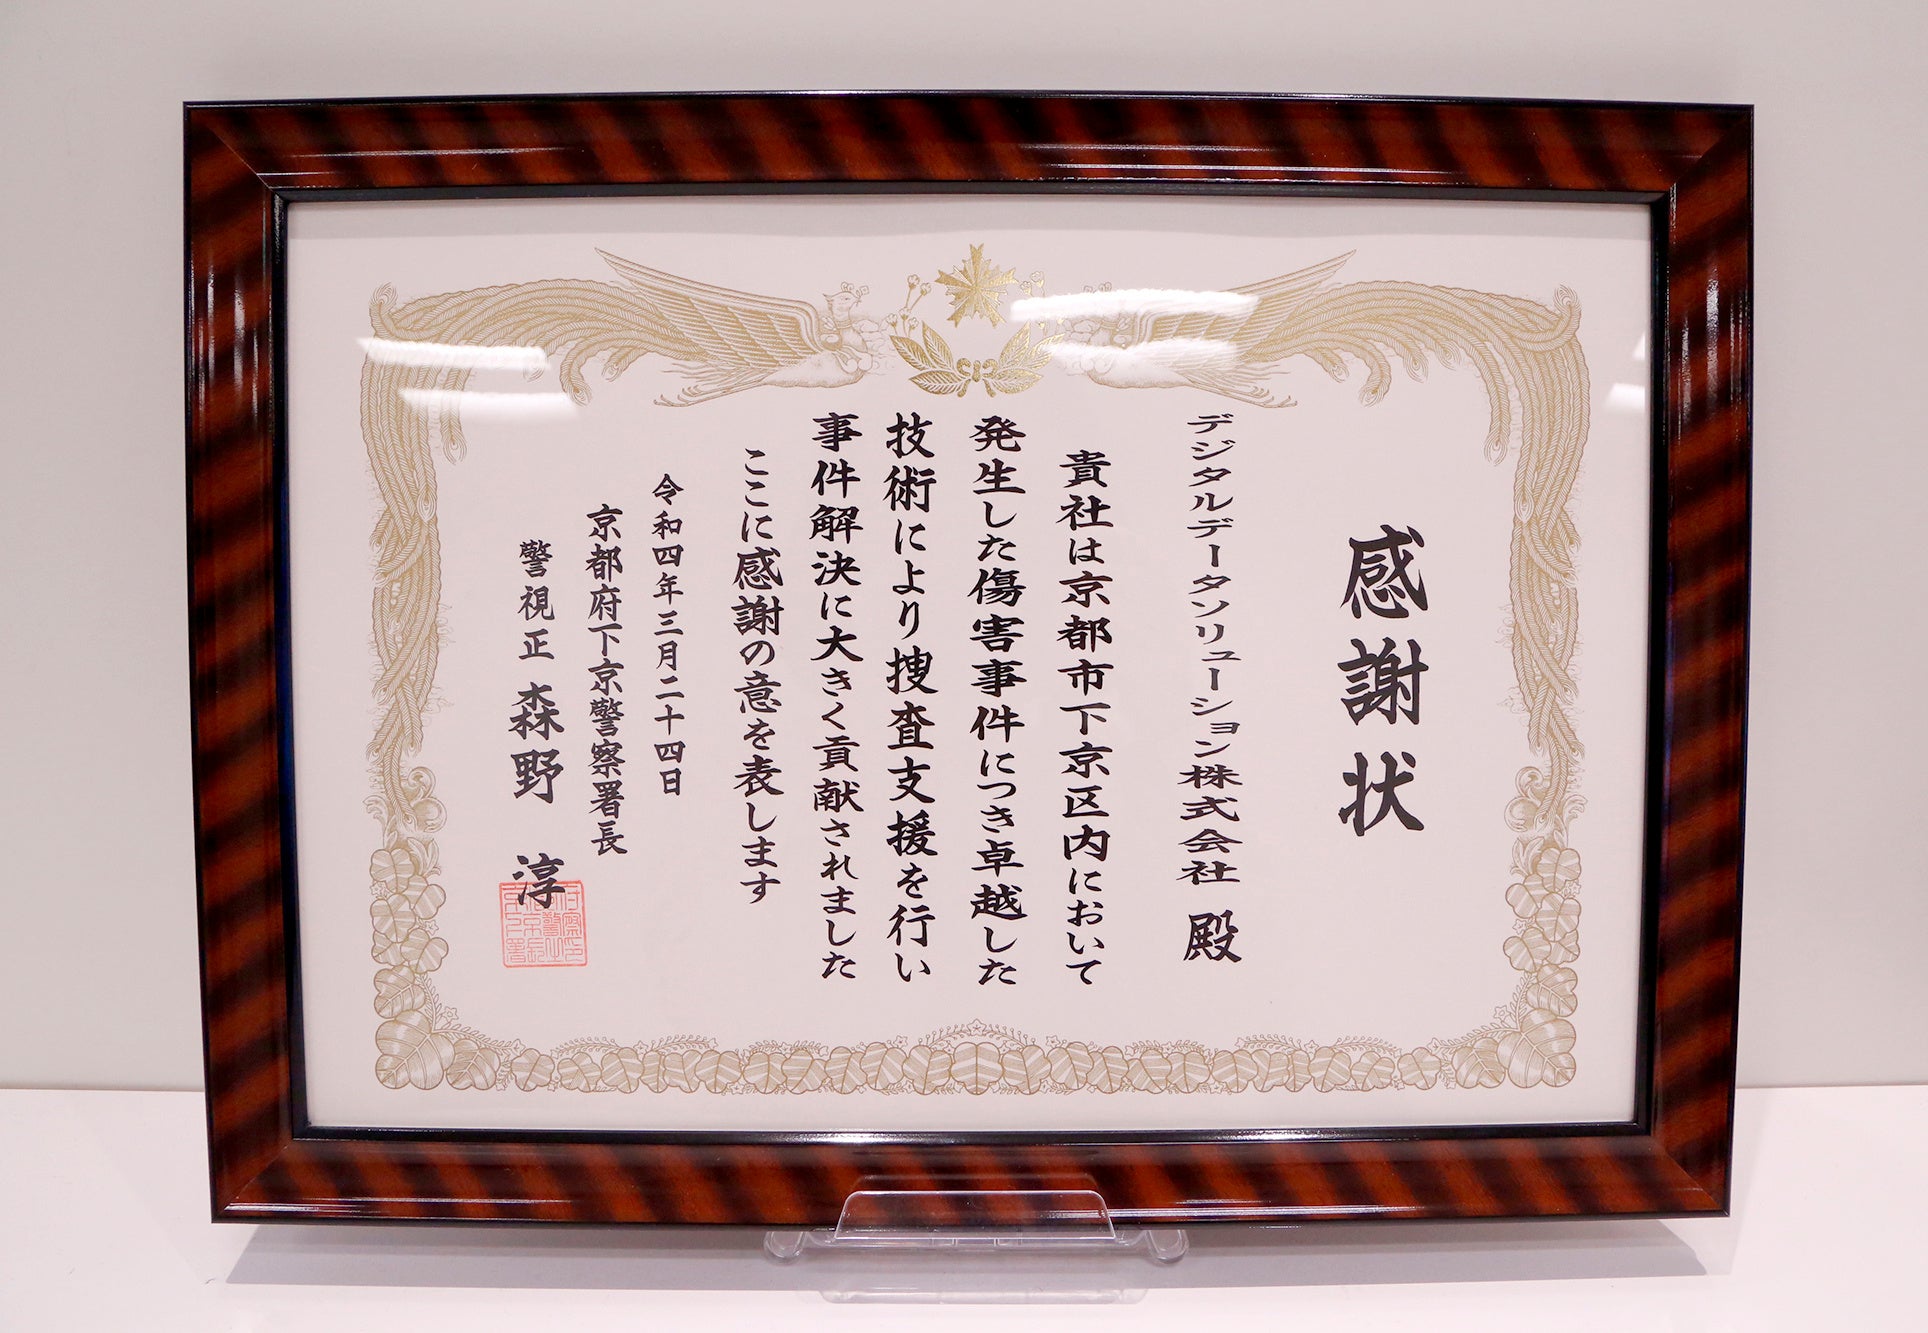 感謝状
デジタルデータソリューション株式会社 殿
貴社は京都市下京区内において
発生した傷害事件につき卓越した
技術により捜査支援を行い
事件解決に大きく貢献されました
ここに感謝の意を表します
令和四年三月二十四日
京都府下京警察署長
警視正 森野 淳